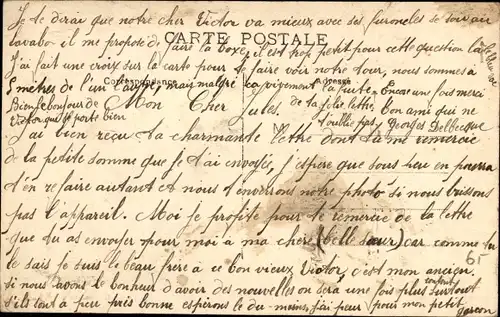 Je te dirai que notre cher Victor va mieux avec ses furoncles ce soir au
lavabo il me propose de faire la boxe, il est trop petit pour cette question là
CARTE POSTALE
J'ai fait une croix sur la carte pour te faire voir notre tour, nous sommes à
Correspondance
5 mètres de l'un l'autre, vrai malgré
Encore une fois merci
Bien le bonjour de
Victor qui se porte bien
Mon Cher Jules.
de ta jolie lettre. Ton ami qui ne
t'oublie pas. Georges Delbecque
J'ai bien reçu ta charmante lettre dont tu me remercie
de la petite somme que je t'ai envoyés, j'espère que sous peu en pourra
t'en refaire autant et nous t'enverrons notre photo si nous brissons
pas l'appareil. Moi je profite pour te remercie de la lettre
que tu as envoyer pour moi à ma chère (belle sœur) car comme tu
le sais je suis le beau frère a ce bon vieux Victor, c'est mon ancien.
65
si nous avons le bonheur d'avoir des nouvelles on sera une fois plus content surtout
s'ils sont à peu près bonne espérons le du moins, j'ai peur pour mon petit
garçon